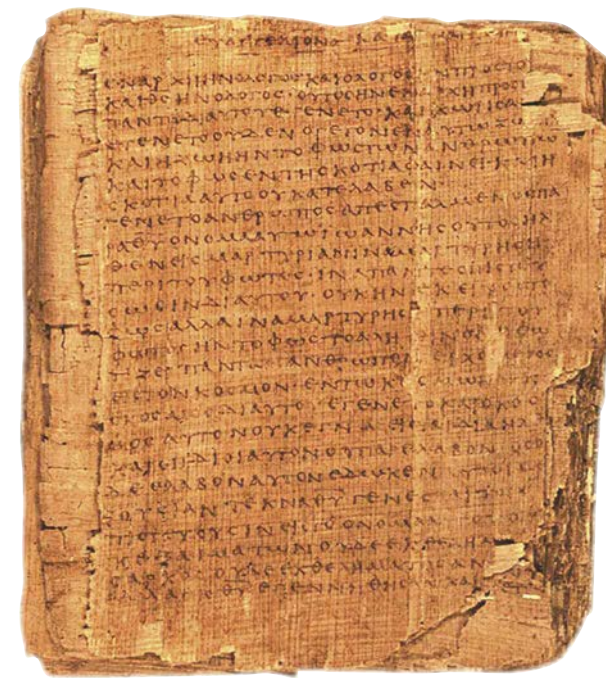 ΕΥΑΓΓΕΛΙΟΝ ΚΑΤΑ
ΕΝ ΑΡΧΗ ΗΝ Ο ΛΟΓΟΣ ΚΑΙ Ο ΛΟΓΟΣ ΗΝ ΠΡΟΣ ΤΟ
ΚΑΙ ΘΣ ΗΝ Ο ΛΟΓΟΣ· ΟΥΤΟΣ ΗΝ ΕΝ ΑΡΧΗ ΠΡΟΣ
ΠΑΝΤΑ ΔΙ ΑΥΤΟΥ ΕΓΕΝΕΤΟ· ΚΑΙ ΧΩΡΙΣ ΑΥ
ΕΓΕΝΕΤΟ ΟΥΔΕΝ Ο ΓΕΓΟΝΕΝ ΕΝ ΑΥΤΩ ΖΩ
ΚΑΙ Η ΖΩΗ ΗΝ ΤΟ ΦΩΣ ΤΩΝ ΑΝΘΡΩΠΩ
ΚΑΙ ΤΟ ΦΩΣ ΕΝ ΤΗ ΣΚΟΤΙΑ ΦΑΙΝΕΙ· ΚΑΙ Η
ΣΚΟΤΙΑ ΑΥΤΟ ΟΥ ΚΑΤΕΛΑΒΕΝ
ΕΓΕΝΕΤΟ ΑΝΘΡΩΠΟΣ ΑΠΕΣΤΑΛΜΕΝΟΣ ΠΑ
ΡΑ ΘΥ ΟΝΟΜΑ ΑΥΤΩ ΙΩΑΝΝΗΣ ΟΥΤΟΣ ΗΛ
ΘΕΝ ΕΙΣ ΜΑΡΤΥΡΙΑΝ ΙΝΑ ΜΑΡΤΥΡΗΣΗ
ΠΕΡΙ ΤΟΥ ΦΩΤΟΣ· ΙΝΑ ΠΑΝΤΕΣ ΠΙΣΤΕΥ
ΣΩΣΙΝ ΔΙ ΑΥΤΟΥ· ΟΥΚ ΗΝ ΕΚΕΙΝΟΣ ΤΟ
ΦΩΣ ΑΛΛΑ ΙΝΑ ΜΑΡΤΥΡΗΣΗ ΠΕΡΙ ΤΟΥ
ΦΩΤΟΣ ΗΝ ΤΟ ΦΩΣ ΤΟ ΑΛΗΘΙΝΟΝ Ο ΦΩ
ΤΙΖΕΙ ΠΑΝΤΑ ΑΝΘΡΩΠΟΝ ΕΡΧΟΜΕΝΟΝ
ΕΙΣ ΤΟΝ ΚΟΣΜΟΝ· ΕΝ ΤΩ ΚΟΣΜΩ ΗΝ
ΚΟΣΜΟΣ ΔΙ ΑΥΤΟΥ ΕΓΕΝΕΤΟ ΚΑΙ Ο ΚΟΣ
ΜΟΣ ΑΥΤΟΝ ΟΥΚ ΕΓΝΩ ΕΙΣ ΤΑ ΙΔΙΑ ΗΛΘ
ΚΑΙ ΟΙ ΙΔΙΟΙ ΑΥΤΟΝ ΟΥ ΠΑΡΕΛΑΒΟΝ ΟΣΟΙ
ΔΕ ΕΛΑΒΟΝ ΑΥΤΟΝ ΕΔΩΚΕΝ ΑΥΤΟΙΣ ΕΞ
ΟΥΣΙΑΝ ΤΕΚΝΑ ΘΥ ΓΕΝΕΣΘΑΙ ΤΟΙΣ
ΠΙΣΤΕΥΟΥΣΙΝ ΕΙΣ ΤΟ ΟΝΟΜΑ ΑΥΤΟΥ ΟΙ
ΟΥΚ ΕΞ ΑΙΜΑΤΩΝ ΟΥΔΕ ΕΚ ΘΕΛΗΜΑ
ΣΑΡΚΟΣ ΟΥΔΕ ΕΚ ΘΕΛΗΜΑΤΟΣ ΑΝ
ΑΛΛΑ ΕΚ ΘΥ ΕΓΕΝΝΗΘΗΣΑΝ ΚΑΙ